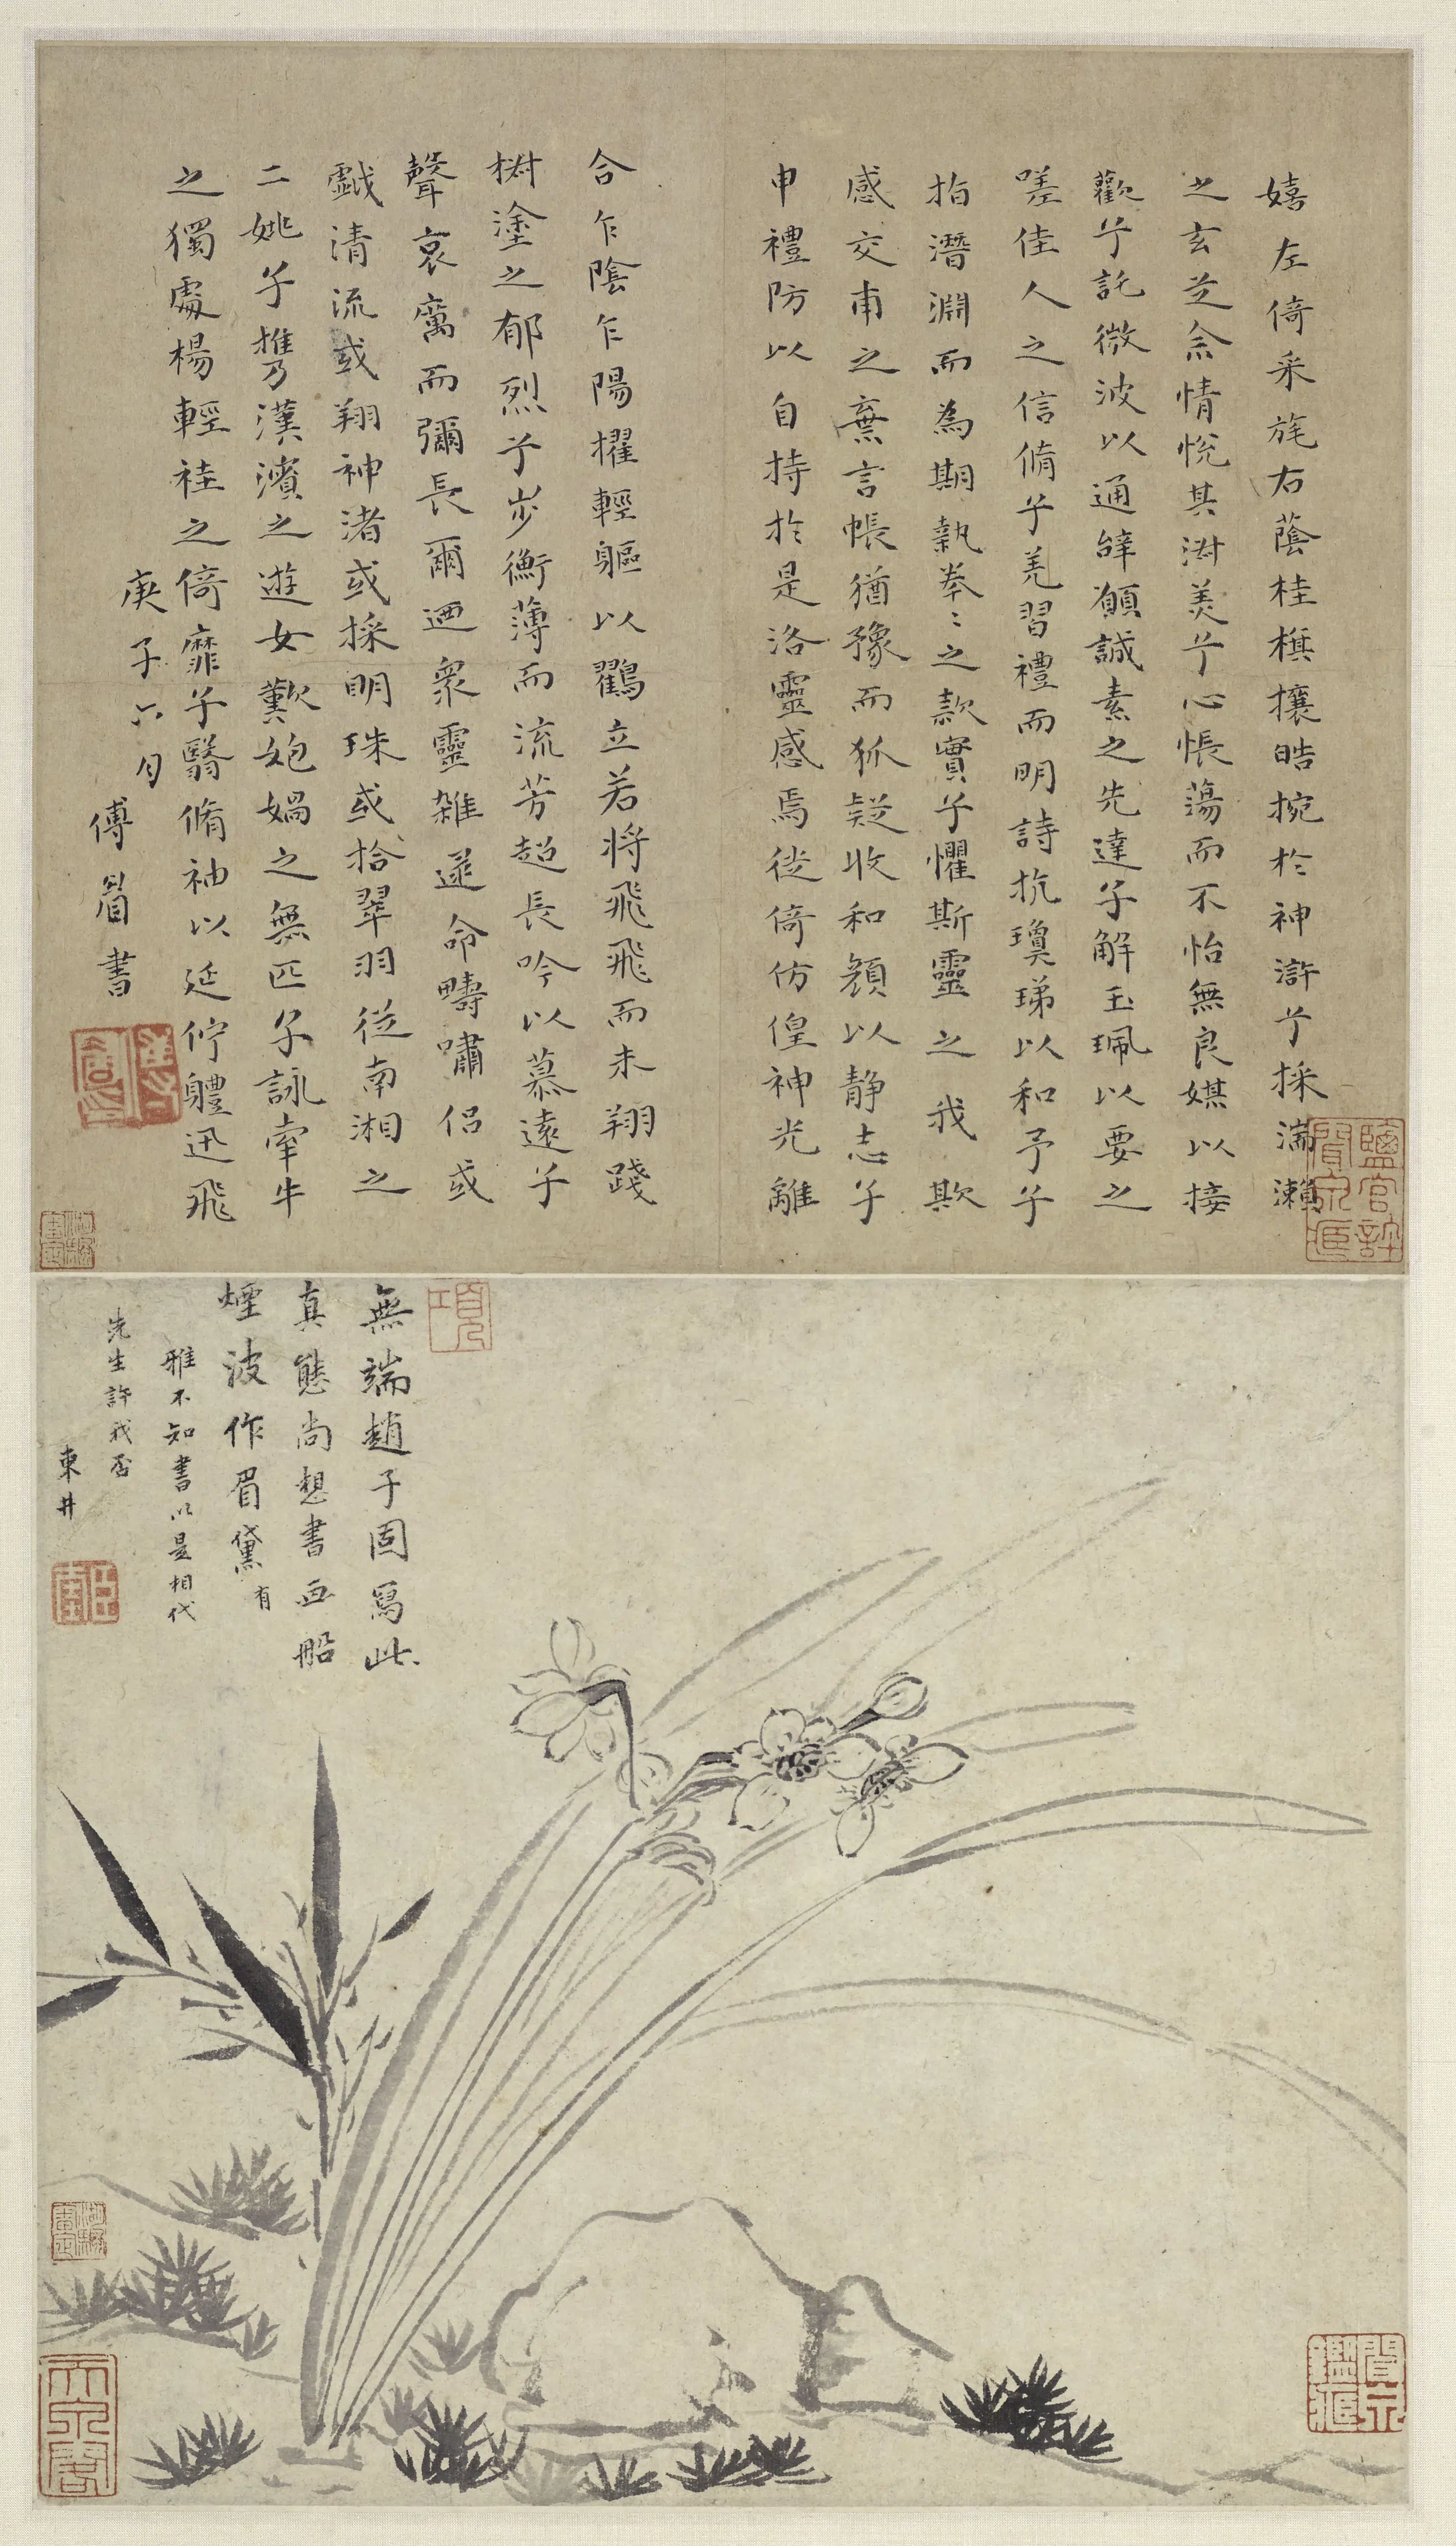 嬉左倚采旄右蔭桂旗攘皓捥於神滸兮採湍瀨
之玄芝余情悅其淑美兮心悵蕩而不怡無良媒以接
歡兮託微波以通辭願誠素之先達兮解玉珮以要之
嗟佳人之信脩兮羌習禮而明詩抗瓊珶以和予兮
指潛淵而為期執拳〻之款實兮懼斯靈之我欺
感交甫之棄言悵猶豫而狐疑收和顏以靜志兮
申禮防以自持於是洛靈感焉徙倚仿偟神光離
合乍陰乍陽擢輕軀以鸖立若將飛飛而未翔踐
樹塗之郁烈兮步衡薄而流芳超長吟以慕遠兮
聲哀厲而彌長爾迺衆靈雜遝命疇嘯侶或
戲清流或翔神渚或採明珠或拾翠羽從南湘之
二姚兮攜漢濱之遊女歎匏媧之無匹兮詠牽牛
之獨處楊輕袿之倚靡兮翳脩袖以延佇軆迅飛
庚子六月
傅眉書
無端趙子固寫此
真態尚想書画船
煙波作眉黛有
雅不知書以是相代
先生許我否
東井